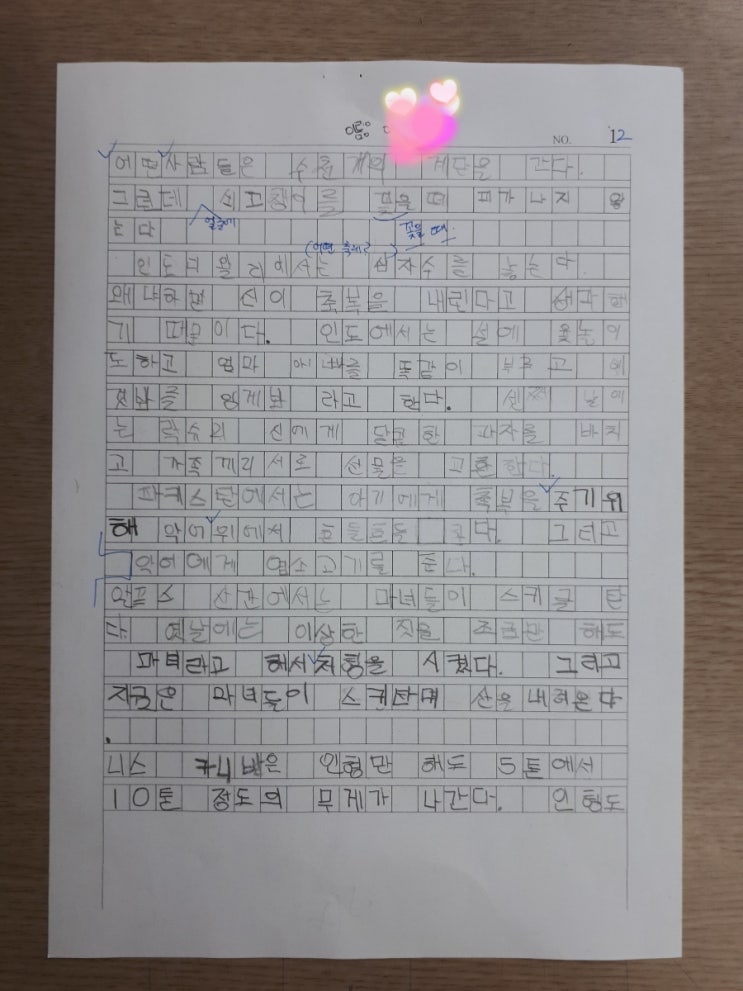 이름: 이
NO. 12
어떤사람들은 수천 개의 계단을 간다.
그런데 쇠꼬챙이를 꽂을 떼 피가 나지 않
얼굴에 꽂을 때.
는다
(어떤 축제로)
인도 에서는 십자수를 놓는다.
왜냐하면 신이 축복을 내린다고 생각했
기 때문이다. 인도에서는 설에 윷놀이
도하고 엄마 아빠를 똑같이 부르고
라고 한다. 셋째 날에
는 신에게 달콤한 과자를 바치
고 가족끼리 서로 선물을 교환한다.
파키스탄에서는 아기에게 축복을주기위
해 악어위에서 흔들흔들 한다. 그리고
악어에게 염소고기를 준다.
알프스 산간에서는 마녀들이 스키를 탄
다. 옛날에는 이상한 짓을 조금만 해도
마녀라고 해서처형을 시켰다. 그리고
지금은 마녀들이 스키타며 산을 내려온다
.
니스 카니발은 인형만 해도 5톤에서
10톤 정도의 무게가 나간다. 인형도